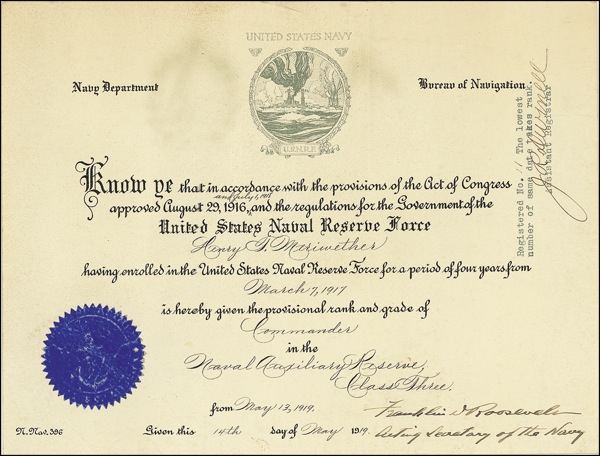 UNITED STATES NAVY
Navy Department
Bureau of Navigation
U.S.N.R.F.
Registered No. 11 The lowest
number of same date takes rank.
Assistant Registrar
Know ye that in accordance with the provisions of the Act of Congress
and July 1, 1918
approved August 29, 1916, and the regulations for the Government of the
United States Naval Reserve Force
Henry T. Meriwether
having enrolled in the United States Naval Reserve Force for a period of four years from
March 7, 1917
is hereby given the provisional rank and grade of
Commander
in the
Naval Auxiliary Reserve,
Class Three.
from May 13, 1919.
Franklin D Roosevelt
N. Nav. 396
Given this 14th day of May 1919.
Acting Secretary of the Navy